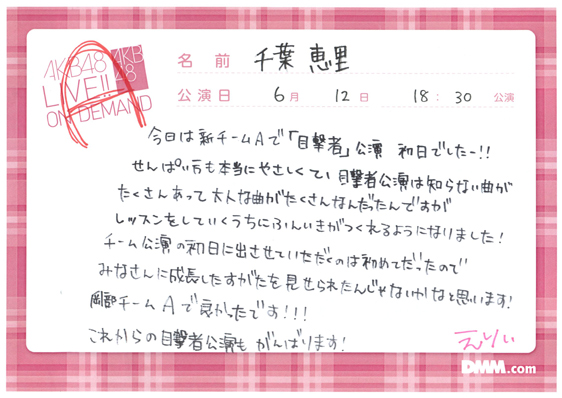 AKB48
LIVE!!
ON DEMAND
AKB
48
A
名前 千葉 恵里
公演日 6月 12日 18:30 公演
今日は新チームAで「目撃者」公演 初日でしたー!!
せんぱい方も本当にやさしくてい 目撃者公演は知らない曲が
たくさんあって大人な曲がたくさんなんだったんですが
レッスンをしていくうちにふんいきがつくれるようになりました!
チーム公演の初日に出させていただくのは初めてだったので
みなさんに成長したすがたを見せられたんじゃないかなと思います!
岡部チームAで良かったです!!!
これからの目撃者公演もがんばります!
えりい
DMM.com